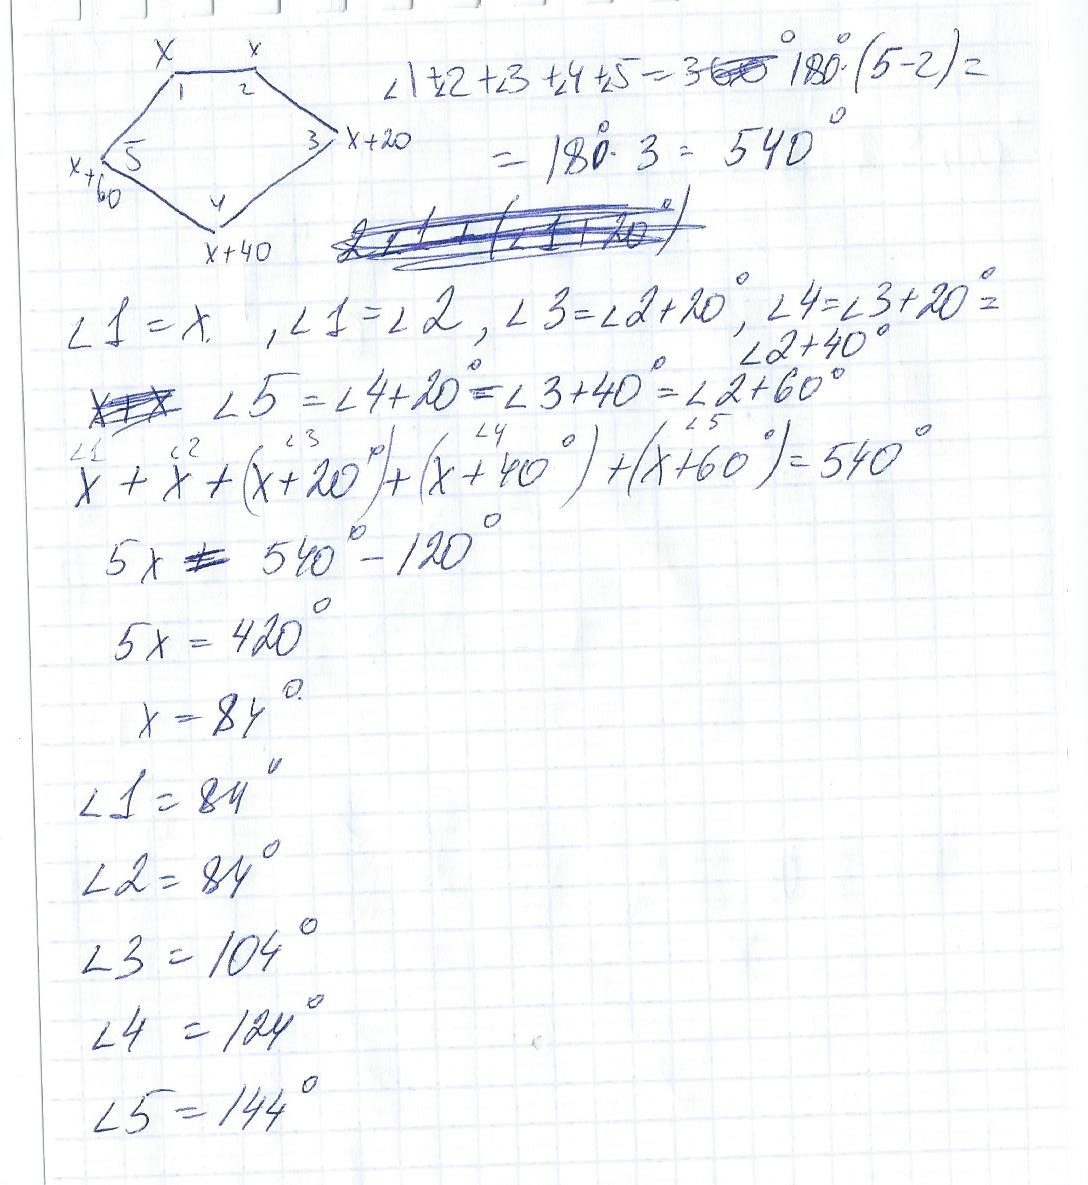 x x
1 2
3 x+20
5
x+60
4
x+40
∠1+∠2+∠3+∠4+∠5=180°·(5-2)=
=180°·3=540°
2∠1+(∠1+20°)
∠1=x, ∠1=∠2, ∠3=∠2+20°, ∠4=∠3+20°=
∠2+40°
x+x ∠5=∠4+20°=∠3+40°=∠2+60°
∠1 ∠2 ∠3 ∠4 ∠5
x+x+(x+20°)+(x+40°)+(x+60°)=540°
5x = 540°-120°
5x=420°
x=84°
∠1=84°
∠2=84°
∠3=104°
∠4=124°
∠5=144°